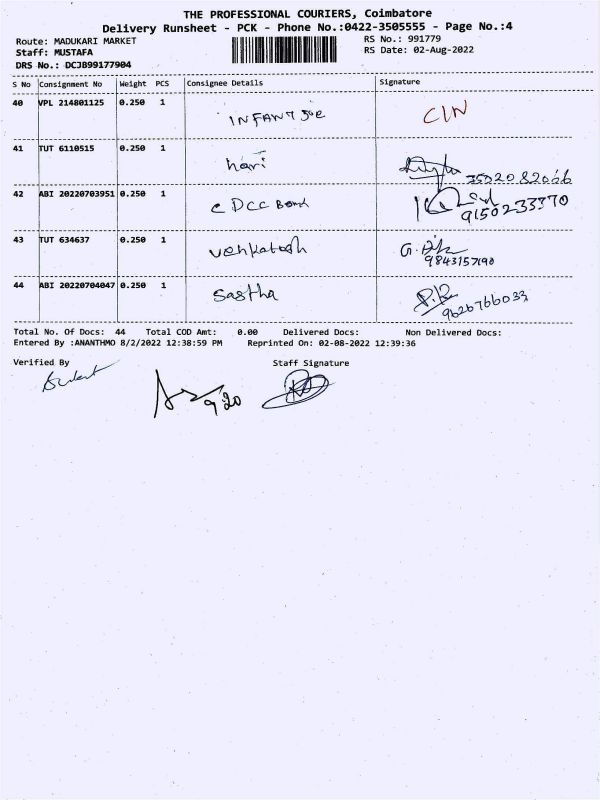 THE PROFESSIONAL COURIERS, Coimbatore
Delivery Runsheet - PCK - Phone No.:0422-3505555 - Page No.:4
Route: MADUKARI MARKET RS No.: 991779
Staff: MUSTAFA RS Date: 02-Aug-2022
DRS No.: DCJB99177904
S No Consignment No Weight PCS Consignee Details Signature
40 VPL 214801125 0.250 1 INFANT JOE CIN
41 TUT 6110515 0.250 1 hari
42 ABI 20220703951 0.250 1 CDCC Bank 9150233370
43 TUT 634637 0.250 1 Venkatesh 9843157190
44 ABI 20220704047 0.250 1 Sastha 9626766033
Total No. Of Docs: 44 Total COD Amt: 0.00 Delivered Docs: Non Delivered Docs:
Entered By :ANANTHMO 8/2/2022 12:38:59 PM Reprinted On: 02-08-2022 12:39:36
Verified By Staff Signature
9.20